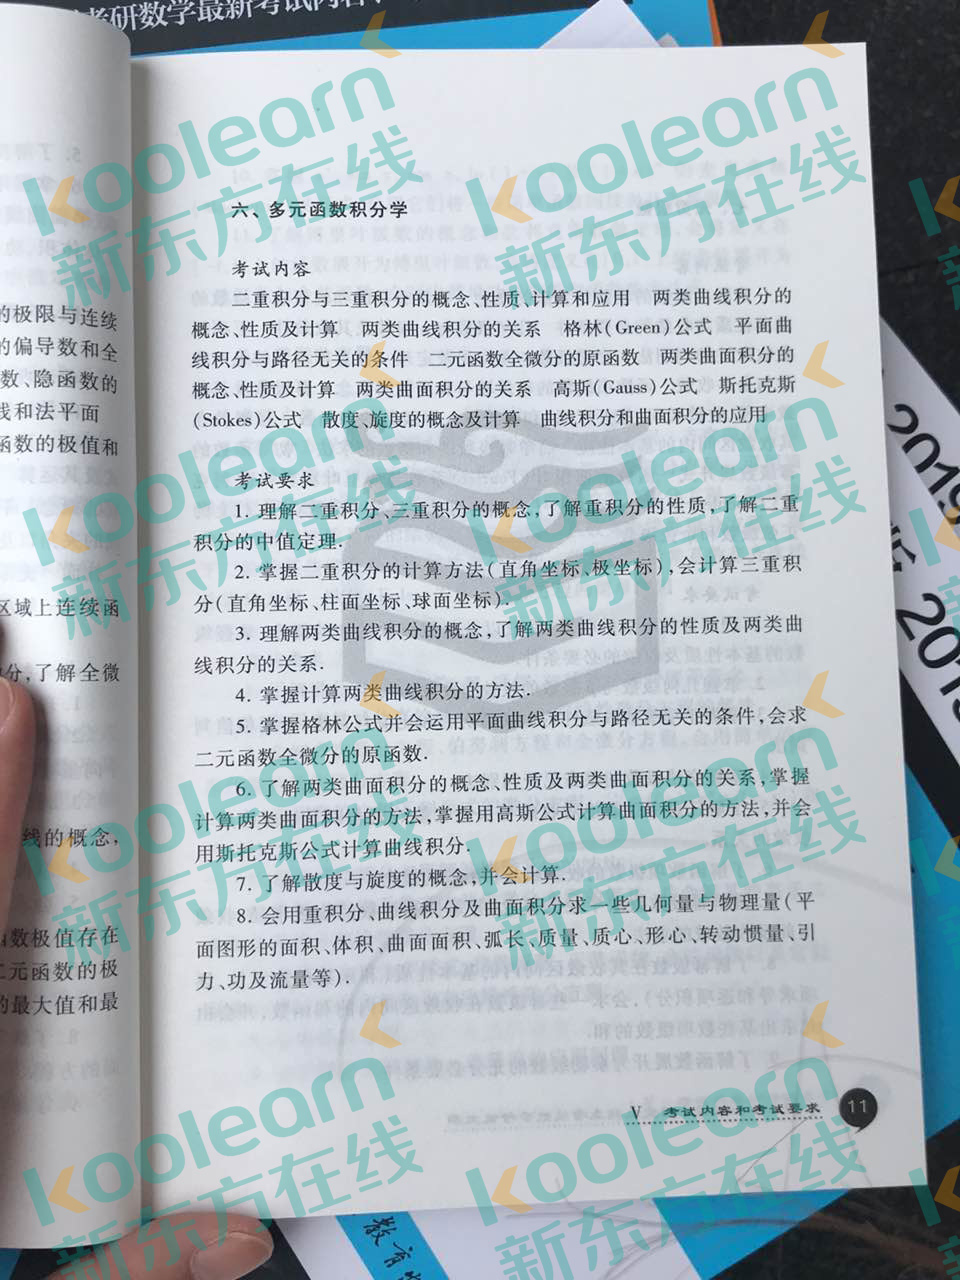 考研数学最新考试内容
六、多元函数积分学
考试内容
二重积分与三重积分的概念、性质、计算和应用　两类曲线积分的
概念、性质及计算　两类曲线积分的关系　格林(Green)公式　平面曲
线积分与路径无关的条件　二元函数全微分的原函数　两类曲面积分的
概念、性质及计算　两类曲面积分的关系　高斯(Gauss)公式　斯托克斯
(Stokes)公式　散度、旋度的概念及计算　曲线积分和曲面积分的应用
考试要求
1. 理解二重积分、三重积分的概念,了解重积分的性质,了解二重
积分的中值定理.
2. 掌握二重积分的计算方法(直角坐标、极坐标),会计算三重积
分(直角坐标、柱面坐标、球面坐标).
3. 理解两类曲线积分的概念,了解两类曲线积分的性质及两类曲
线积分的关系.
4. 掌握计算两类曲线积分的方法.
5. 掌握格林公式并会运用平面曲线积分与路径无关的条件,会求
二元函数全微分的原函数.
6. 了解两类曲面积分的概念、性质及两类曲面积分的关系,掌握
计算两类曲面积分的方法,掌握用高斯公式计算曲面积分的方法,并会
用斯托克斯公式计算曲线积分.
7. 了解散度与旋度的概念,并会计算.
8. 会用重积分、曲线积分及曲面积分求一些几何量与物理量(平
面图形的面积、体积、曲面面积、弧长、质量、质心、形心、转动惯量、引
力、功及流量等).
V　考试内容和考试要求　11
的极限与连续
的偏导数和全
数、隐函数的
线和法平面
函数的极值和
区域上连续函
分,了解全微
线的概念,
函数极值存在
二元函数的极
的最大值和最
2019
201
教育
koolearn
新东方在线
koolearn
新东方在线
koolearn
新东方在线
koolearn
新东方在线
koolearn
新东方在线
koolearn
新东方在线
koolearn
新东方在线
koolearn
新东方在线